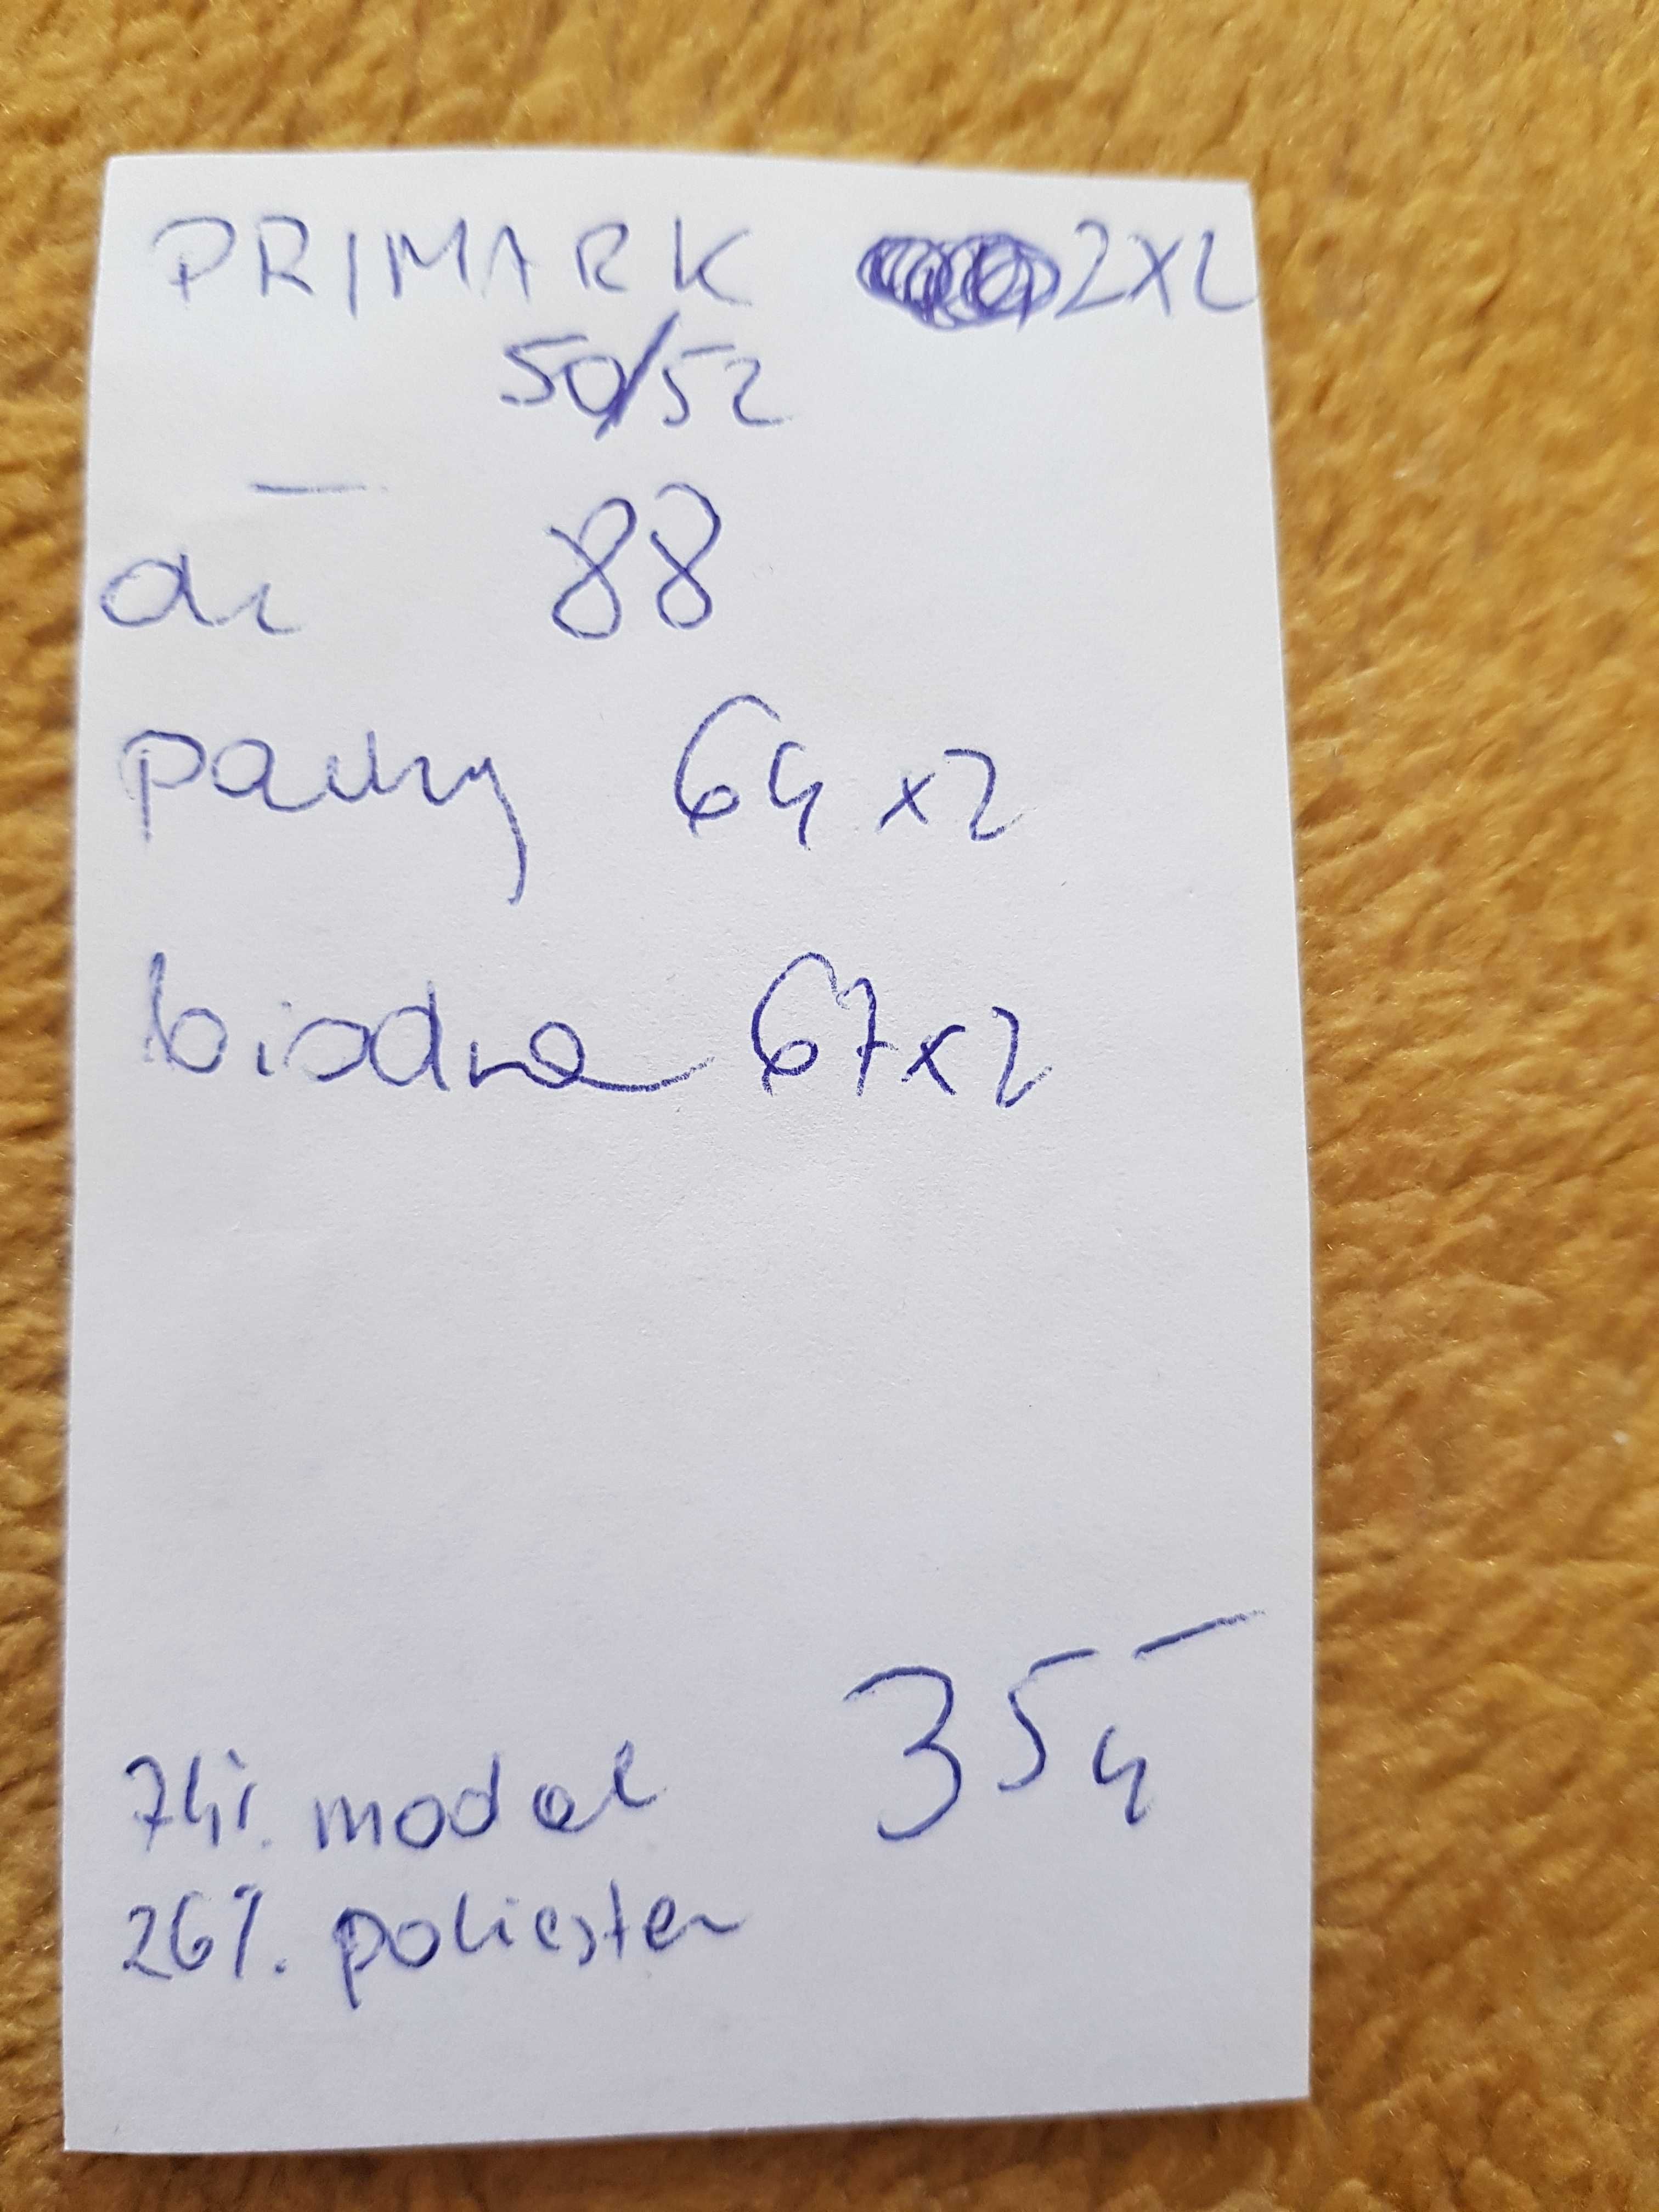 PRIMARK 2XL
50/52
dł 88
pachy 64 x2
biodra 67x2
354
74% modal
26% poliester